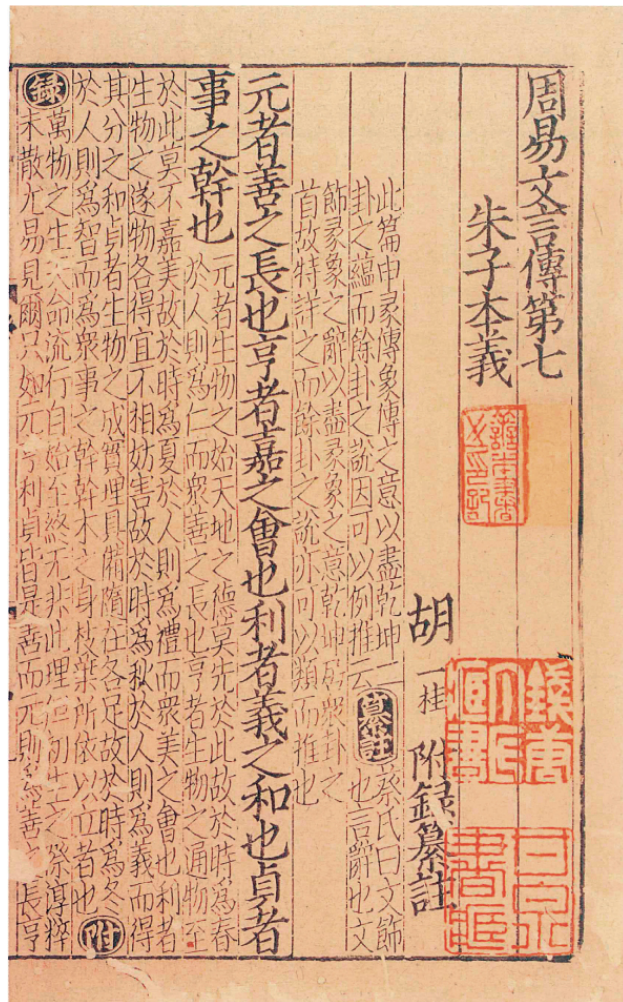 周易文言傳第七
朱子本義
胡一桂附録纂註
此篇申彖傳象傳之意以盡乾坤二
卦之蘊而餘卦之說因可以例推云
纂註
蔡氏曰文飾
也言辭也文
飾彖象之辭以盡彖象之意乾坤爲衆卦之
首故特詳之而餘卦之說亦可以類而推也
元者善之長也亨者嘉之會也利者義之和也貞者
事之幹也
元者生物之始天地之德莫先於此故於時爲春
於人則爲仁而衆善之長也亨者生物之通物至
於此莫不嘉美故於時爲夏於人則爲禮而衆美之會也利者
生物之遂物各得宜不相妨害故於時爲秋於人則爲義而得
其分之和貞者生物之成實理具備隨在各足故於時爲冬
於人則爲智而爲衆事之幹幹木之身枝葉所依以立者也附
録萬物之生天命流行自始至終无非此理但初生之際淳粹
未散尤易見爾只如元亨利貞皆是善而元則爲善之長亨